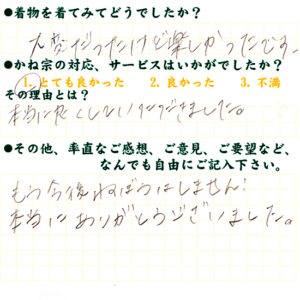 ●着物を着てみてどうでしたか?
大変だったけど楽しかったです。
●かね宗の対応、サービスはいかがでしたか?
1. とても良かった 2. 良かった 3. 不満
その理由とは?
本当に良くしていただきました。
●その他、率直なご感想、ご意見、ご要望など、
なんでも自由にご記入下さい。
もう今後ねぼうはしません!
本当にありがとうございました。